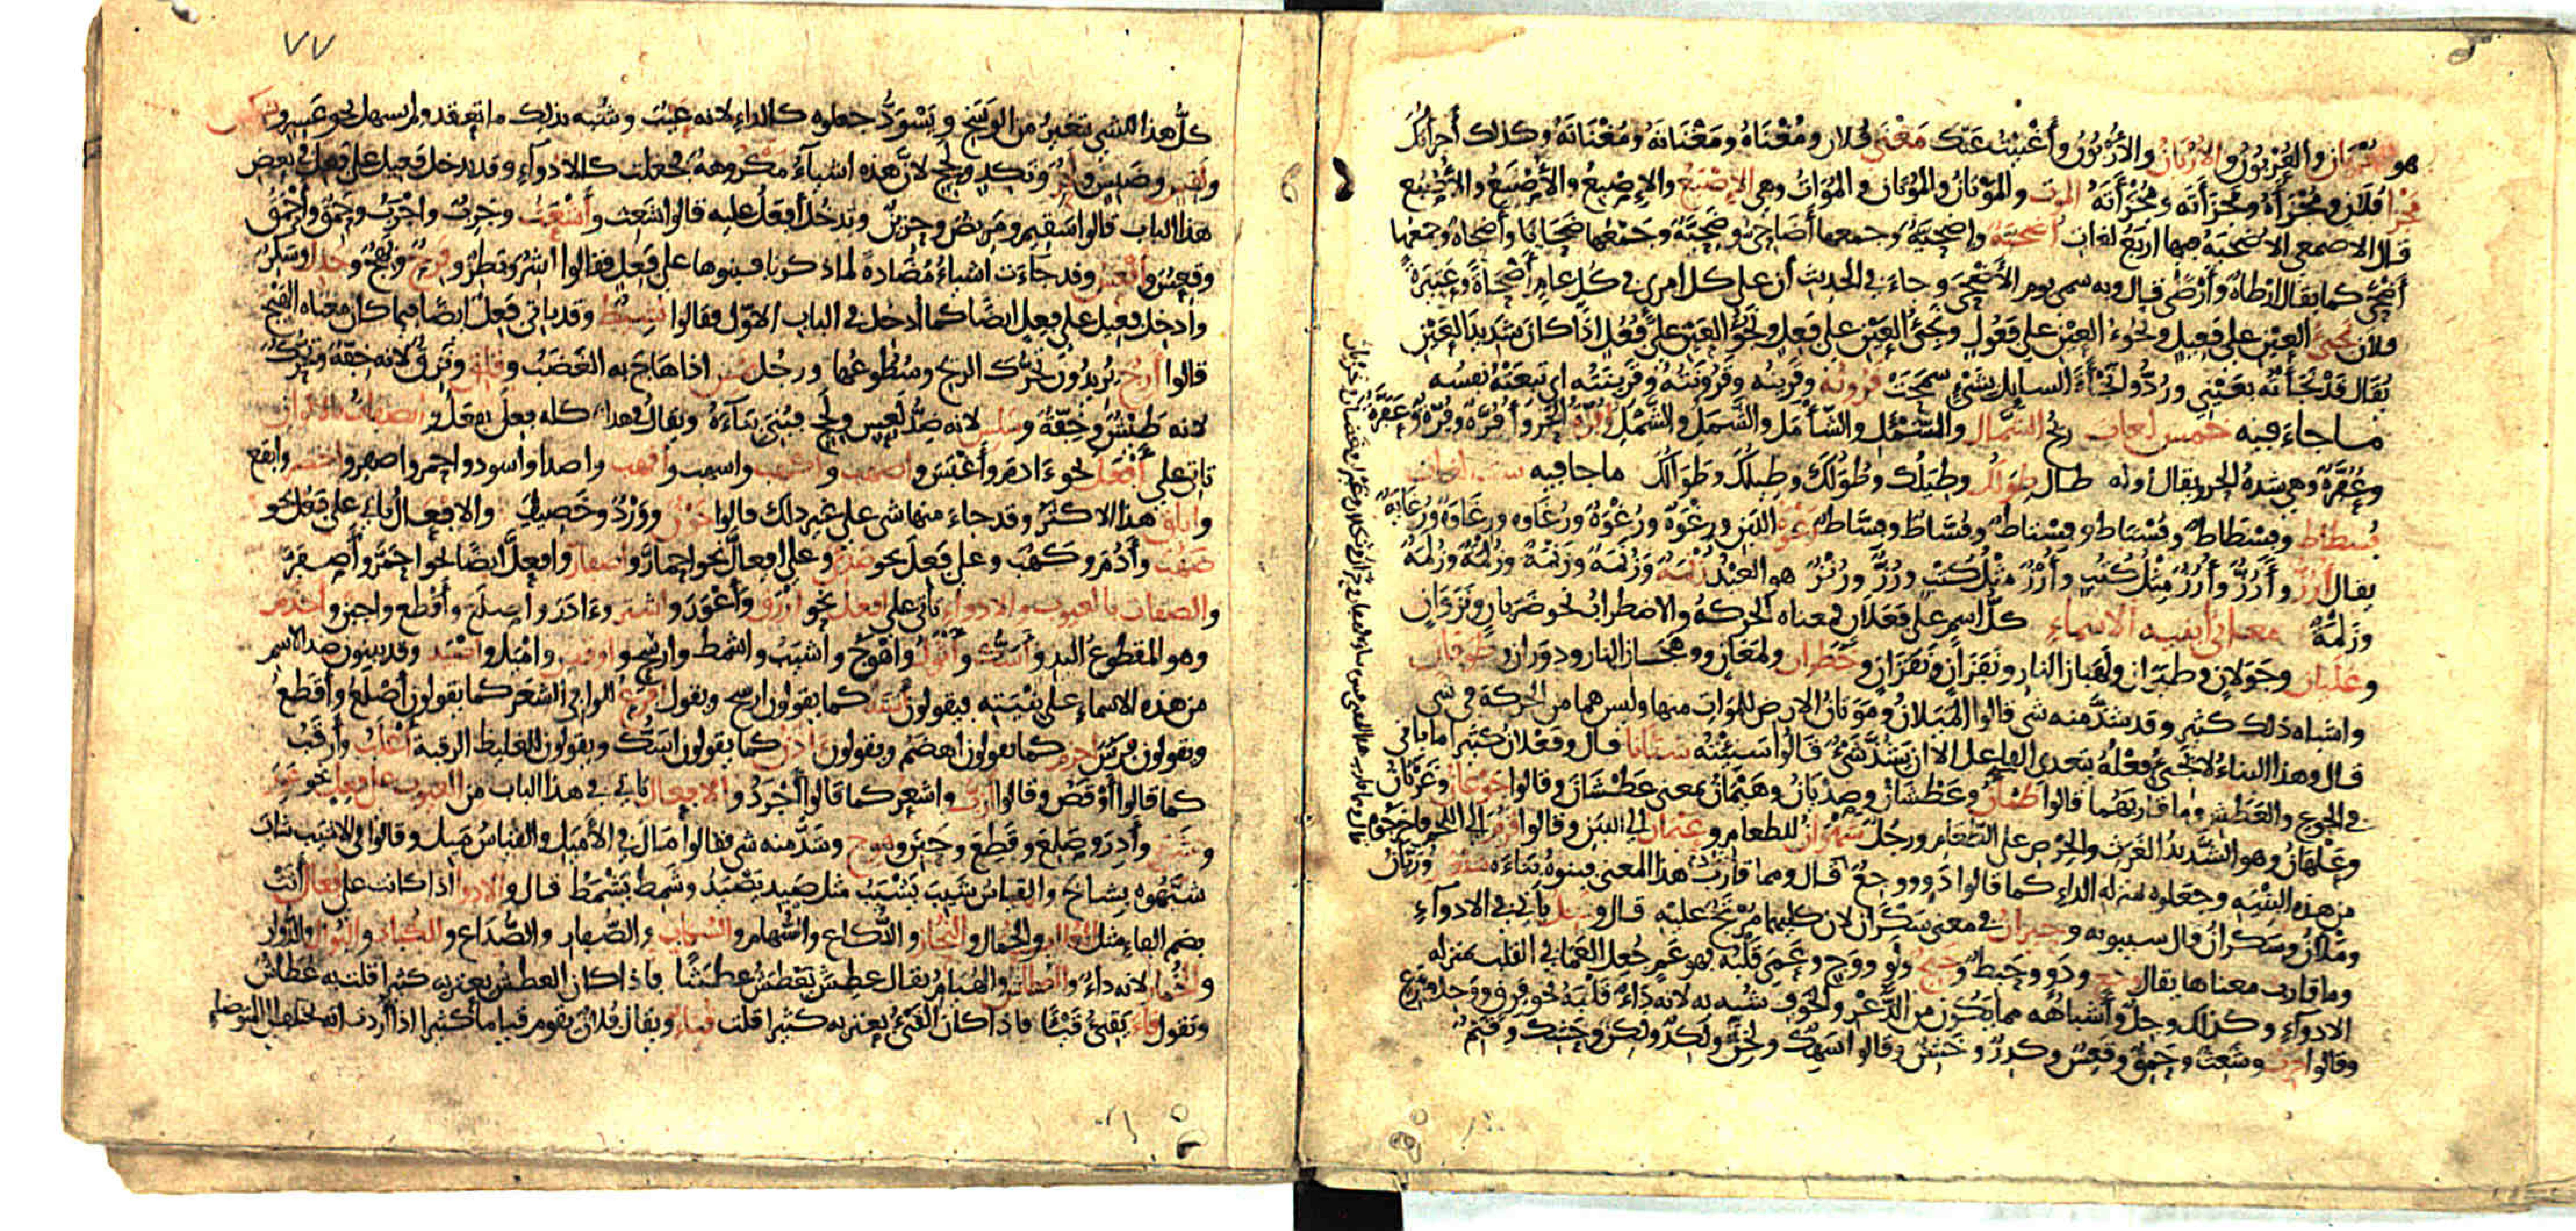 هو العُرْبَان والعُرْبُون والأُرْبَان والأُرْبُون وأَغْنَيْتُ عنك مَغْنَى فُلان ومُغْنَاهُ ومَغْنَاتَه ومُغْنَاتَهُ وكذلك أجزأتُكَ
مَجْزَأ فُلان ومُجْزَأهُ ومَجْزَأَتَه ومُجْزَأَتَهُ المَوت والمَوْتَانُ والمُوتَان والمُوَات وهي الإِصْبَع والإِصْبِعُ والأَصْبَعُ والأُصْبُع
قال الاصمعي الاُضْحِيَّة فيها اربَعُ لغات أُضْحِيَّة واِضْحِيَّةٌ وجمعها أَضَاحِيّ وضَحِيَّةٌ وجَمْعُها ضَحَايَا وأَضْحَاة وجمعُها
أَضْحًى كما يقال أَرْطَاةٌ وأَرْطًى قال وبه سمي يوم الأَضْحَى وجاء في الحديث أن على كل امرئ في كل عام أَضْحَاةً وعَتِيرَةً
فلان نَجِيءُ العين على فَعِيلٍ ونَجُوءُ العين على فَعُولٍ ونَجِئُ العَيْن على فَعِلٍ ونَجُؤُ العين على فَعُلٍ اذا كان شديد العَيْن
يُقَال قَدْ نَجَأتُه بعَيْنِي ورُدُّوا نَجْأَةَ السايل بشيْءٍ سَمَحَتْ قَرُونُه وقَرِينُه وقَرُونَتُه وقَرِينَتُه اي تبِعَتْهُ نفسُه
ما جاء فيه خمس لغات ريح الشَّمَال والشَّمْأَل والشَّأْمَل والشَّمَل والشَّمْل أُفُرَّةُ الحَرّ وأَفُرَّه وفُرَّةٌ وعَفُرَّةٌ
وعُفُرَّة وهي شدة الحر يقال أوله طال طِوَلُك وطِيَلُك وطُولُكَ وطِيلُكَ وطَوَالُكَ ما جا فيه ست لغات
فُسْطَاط وفِسْطَاط وفُسْتَاط وفِسْتَاط وفُسَّاط وفِسَّاط رَغْوَة اللبَن ورِغْوَة ورُغْوَة ورُغَاوَه ورِغَاوَة ورُغَايَة
يقال أَرُزّ وأُرُزٌّ وأُرُزٌ مِثْلُ كُتُبٍ وأُرْزٌ مثْلُ كُتْبٍ ورُزٌّ ورُنْزٌ هو العَبْدُ زَُلْمَةً وزَُنْمَةً
وزَلَمَةً معاني أبنية الاسماء كلُّ اسم على فَعَلَان فمعناه الحركةُ والاضطرابُ نحو ضَرَبَانٍ ونَزَوَانٍ
وغَلَيان وجَوَلانٍ وطَيَرَانٍ ولَهَبَانِ النار ونَقَزَانٍ ونَفَزَانٍ وخَطَرَان ولَمَعَانٍ ووَهَجَان النار ودوَرَان وطَوَفَان
واشباه ذلك كثير وقد شذ منه شي قالوا المَيَلَانُ ومَوَتَانُ الارض للمَوَاتِ منها وليس هما من الحركة في شي
قال وهذا البناءُ لا يَجِيءُ فعْلُهُ يتعدى الفاعل الا ان يَشُذَّ شَيْءٌ قالوا شَنِئْتُه شَنَآنًا قال وفَعْلَان كثيرا ما ياتي
في الجوع والعَطَش وما قاربَهُما قالوا ظَمْآنُ وعَطْشَانُ وصَدْيَانُ وهَيْمَانُ بمعنى عَطْشَانَ وقالوا جَوْعَانُ وغَرْثَانُ
وعَلْهَانُ وهو الشَّدِيدُ الغَرَثِ والحِرْصِ على الطَّعَام ورجُلٌ شَهْوَانُ للطعام وعَيْمَانُ الى اللبَن وقالوا قَرِمٌ الى اللحم
من هذه البِنْيَة وجعلوه بمنزلة الداء كما قالوا دَوٍ ووَجِعٌ قال ومما قارَبَ هذا المعنى فبنوهُ بِنَاءَه
ومَلْآنُ وسَكْرَانُ قال سيبويه وحَيْرانُ في معنى سَكْرَانَ لان كليهما مُرْتَجٌ عليه قال وفَعِلٌ يأتي في الادواء
وما قارب معناها يقال وجِع ودَوٍ وحَبِط وحَبِجٌ ولَوٍ ووَجٍ وعَمِيَ قَلْبُه فهو عَمٍ جُعل العَمَا في القلب بمنزلة
الادواء وكذلك وجِلٌ وأَشباهُه مما يكون من الذُّعْر والخَوف شُبّه به لانه دَاءٌ قَلْبَهُ نحو فَرِق ووَجِل وفَزِع
وقالوا جَرِبٌ وشَعِثٌ وحَمِقٌ وقَعِسٌ وكَدِرٌ وخَشِنٌ وقالوا سَهِكٌ ولَخِنٌ ولَكِدٌ ولَكِنٌ وحَسِكٌ وقَنِمٌ
٧٧
كلُّ هذا للشي يتغيرُ من الوسَخ ويَسْوَدُّ جعلوه كالداء لانه عَيْبٌ وشُبّه بذلك ما تعقد ولم يسهل نحو عَسِرٍ وشَكِس
ولَقِس وضَبِس ولَحِزٍ ونَكِدٍ ولَحِجٍ لانَّ هذه اشياءُ مَكْرُوهةٌ فجعلت كالادواءِ وقد يدخل فَعِيل على فَعِلٍ في بعض
هذا الباب قالوا سَقِيم ومَرِيضٌ وحزينٌ ويدخُل أَفعَلُ عليه قالوا شَعِث وأَشْعَثُ وجَرِبٌ واجْرَبُ وحَمِقٌ وأَحْمَقُ
وقَعِسٌ وأَقْعَسُ وقد جاءت اشياءُ مُضَادةً لما ذكرنا فبنوها على فَعِلٍ فقالوا أَشِرٌ وبَطِرٌ وفَرِحٌ وبَهِجٌ وجَذِل وسَكِرٌ
وادخل فَعيل على فَعِلٍ ايضًا كما ادخل في الباب الاوّل فقالوا نَشِيطٌ وقد ياتي فَعِلٌ ايضًا فيما كان معناه الهَيْج
قالوا أَرِجٌ يُريدُون تَحرُّك الريح وسُطُوعُها ورجُل حَمِسٌ اذا هاج به الغَضَبُ وقَلِقٌ ونَزِقٌ لانه خِفَّةٌ وتَحَرُّكٌ
لانه طَيْشٌ وخِفَّةٌ وسَلِسٌ لانه ضِدُّ لَعِسٍ ولَحِجٍ فبُنِيَ بناءَهُ ويقال في هذا كله فعِلَ يفعَلُ والصفات بالالوان
تاتي على أَفْعَلَ نحو ءَادم وأَغْبَسَ وأصهب وأكهب واسهب وأقهب واصدا واسود واحمر واصفر واخضر وابقع
وابلق هذا الاكثرُ وقد جاء منها شي على غير ذلك قالوا جَوْنٌ ووَرْدٌ وخَصِيفٌ والافعال تاتي على فعُل نحو
صَهُبَ وأَدُمَ وكَهُبَ وعلى فَعِلَ نحو صَدِئَ وعلى افعالَّ نحو احمارَّ واصفارَّ وافعلَّ ايضًا نحو احمَرَّ وأصفَرَّ
والصفات بالعيوب والادواء تأتي على أفعَل نحو أَزْرَق وأَعْوَرَ وأشتر وءَادَرَ وأصلَعَ وأقطع واجذم
وهو المقطوع اليد وأَشَلَّ وأَثْوَلَ وأَهْوَجَ وأَشيَبَ واشمط وارسح واوقص وامْيَلَ وأصْيَد وقد يبنون ضدّ الاسم
من هذه الاسماء على بِنْيَتِه فيقولون أَسْتَهُ كما يقولون ارسح ويقول أَفْرَعُ للوافي الشعَر كما يقولون أَصْلَعُ وأَقطع
ويقولون فرَسٌ أخرم كما يقولون أهضم ويقولون ءاذن كما يقولون اسَكّ ويقولون للغليظ الرقبة أَغْلَبُ وأَرقَبُ
كما قالوا أَوْقَصُ وقالوا أزبّ واشعر كما قالوا أَجْرَدُ والافعال تاتي في هذا الباب من العيوب على فَعِلَ نحو عَوِرَ
وشَتِرَ وأَدِرَ وصَلِعَ وقَطِعَ وجَبِنَ وهوج وشذَّ منه شي فقالوا مَالَ في الأَميَل والقياسُ مَيِل وقالوا في الاشيَب شاب
شبَّهوه بشاخَ والقياسُ شَيِبَ يَشْيَبُ مثل صَيِدَ يَصْيَدُ وشَمِطَ يَشْمَطُ قال والادوا اذا كانت على فُعَال أتتْ
بضم الفاء مثل القُلاب والخُمال والنُحاز والدُّكَاع والسُّهام والسُّكات والصُّفار والصُّدَاع والكُباد والبُوَال والدُّوار
والخُمار لانه داءٌ والعُطاش والهُيَام يقال عطِشَ يَعْطَشُ عَطَشًا فاذا كان العطشُ يعتريه كثيرا قلت به عُطَاشٌ
وتقول قاءَ يَقِيءُ قَيْئًا فاذا كان القَيْءُ يعتريه كثيرا قلت قُيَاءٌ ويقال فلان يقوم قياما كثيرا اذا اردت انه يختلف الى المتوضإ